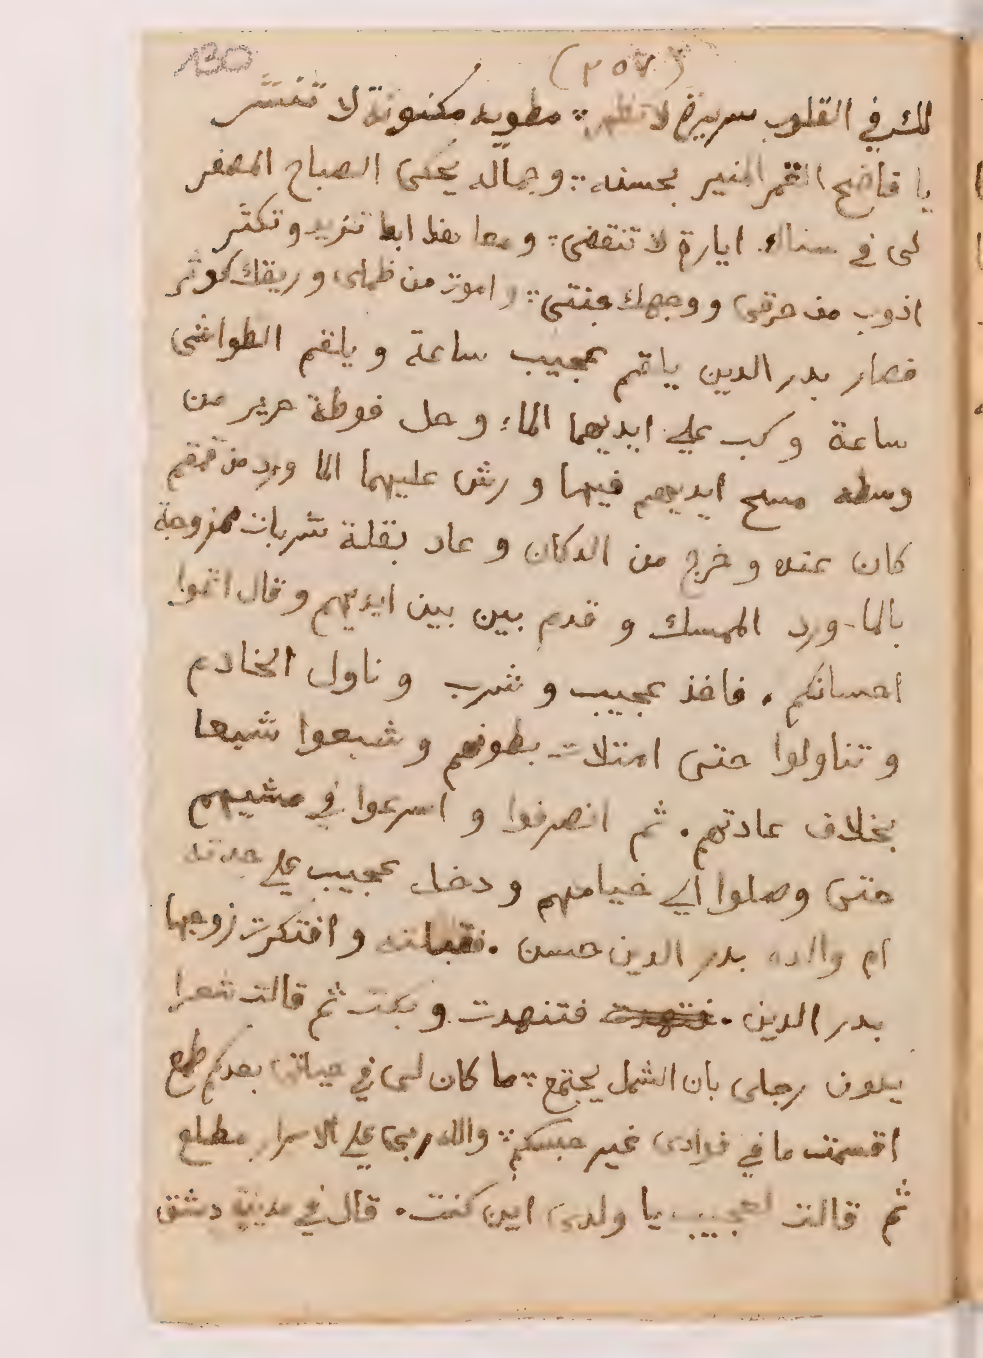 130
(٢٥٧)
لك في القلوب سريرة لا تظهر ؞ مطويه مكنونة لا تنتشر
يا فاضح القمر المنير بحسنه ؞ وجماله يحكى الصباح المسفر
لى في سناك لا تنقضى ؞ ابدا تزيد وتكثر
اذوب من حرقى ووجهك جنتى ؞ واموت من ظماى وريقك كوثر
فصار بدر الدين يلقم عجيب ساعة و يلقم الطواشى
ساعة وكب علي ايديهما الماء وحل فوطة حرير من
وسطه مسح ايديهم فيها و رش عليهما الما ورد من قمقم
كان عنده و خرج من الدكان و عاد بقلة شربات ممزوجة
بالما ورد الممسك و قدم بين بين ايديهم وقال اتموا
احسانكم . فاخذ عجيب و شرب و ناول الخادم
و تناولوا حتى امتلات بطونهم و شبعوا شبعا
بخلاف عادتهم . ثم انصرفوا و اسرعوا في مشيهم
حتى وصلوا الي خيامهم ودخل عجيب علي جدته
ام والده بدر الدين حسن . فقبلته و افتكرت زوجها
بدر الدين . فتنهدت فتنهدت و بكت ثم قالت شعرا
رجلى بان الشمل يجتمع ؞ ما كان لى في حياتى بعدكم طمع
اقسمت ما في فوادى غير حبكم ؞ والله ربى علي الاسرار مطلع
ثم قالت لعجيب يا ولدى اين كنت . قال في مدينة دمشق